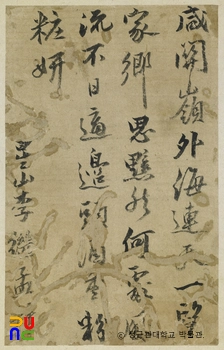 咸關嶺外海連天一望
家鄉思黯然何處
流不日適邊頭洞壑粉
粧姸
星山李 孟
© 성균관대학교 박물관